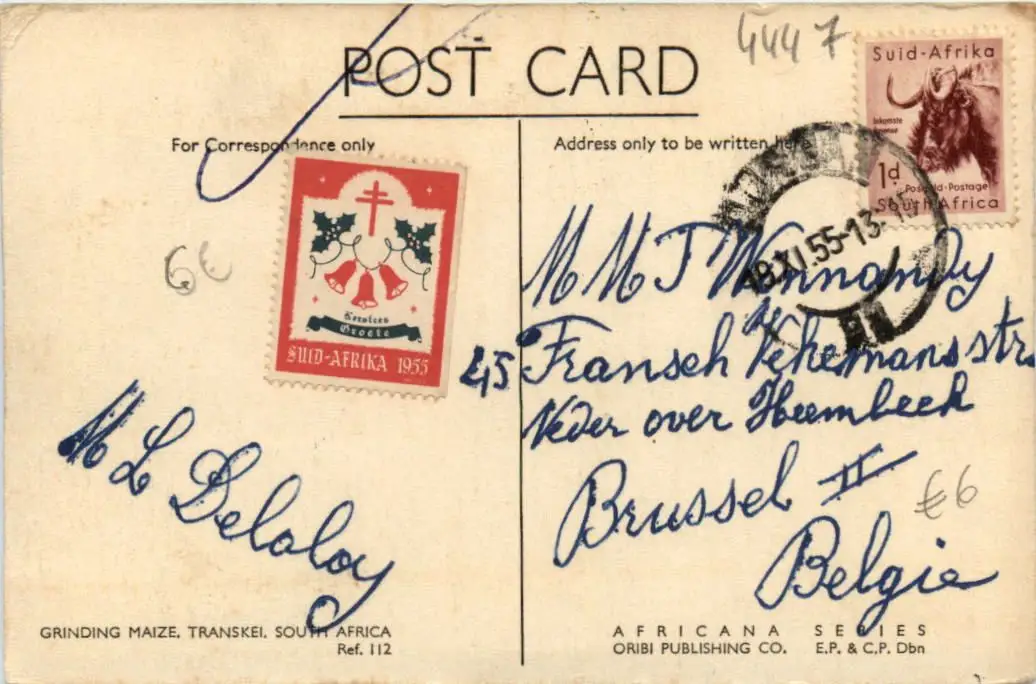 4447
POST CARD
For Correspondence only
Address only to be written here
Suid-Afrika
1d
Posgeld·Postage
South Africa
18 XI.55-13
6€
Kersfees
Groete
SUID-AFRIKA 1955
M M J Winnandy
45 Fransch Vekemansstr
Neder over Heembeek
Brussel II
Belgie
€6
M L Delaloy
GRINDING MAIZE, TRANSKEI, SOUTH AFRICA
Ref. 112
AFRICANA SERIES
ORIBI PUBLISHING CO. E.P. & C.P. Dbn